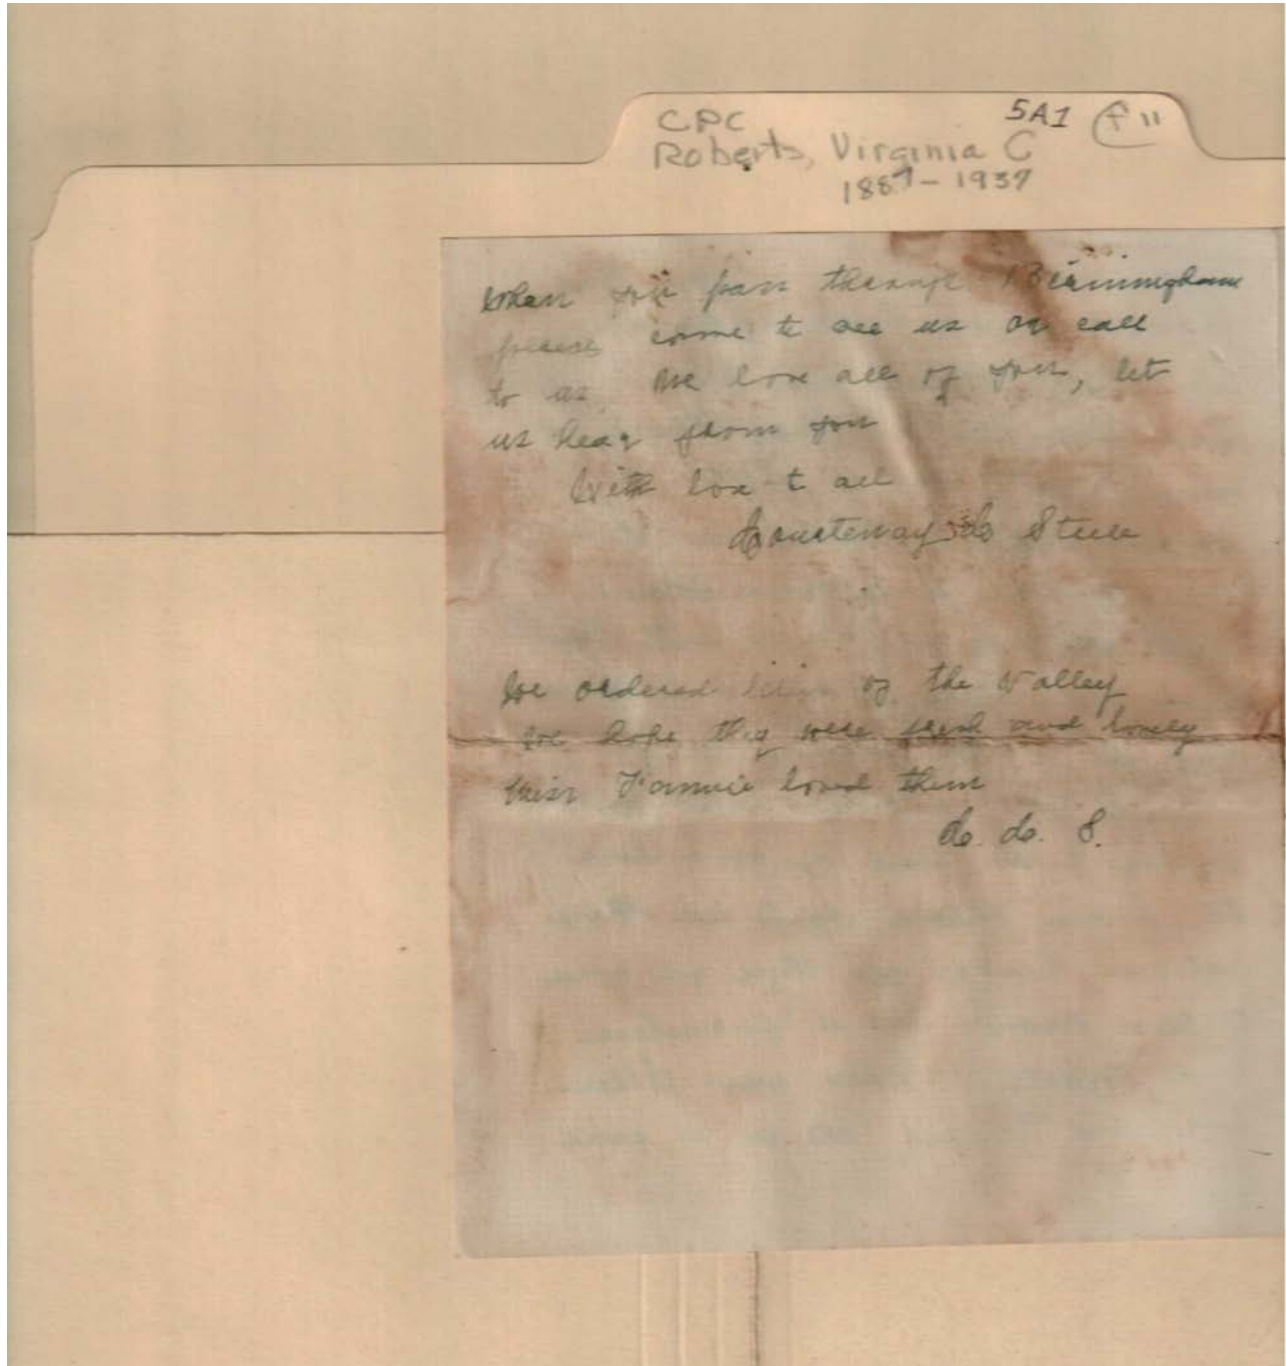 CPC 5A1 f 11
Roberts, Virginia C
1887-1937
When you pass through Birmingham
please come to see us or call
to us. We love all of you, let
us hear from you
With love to all
Courtenay C Steele
We ordered lilies of the Valley
We hope they were fresh and lovely
Miss Fannie loved them
C. C. S.